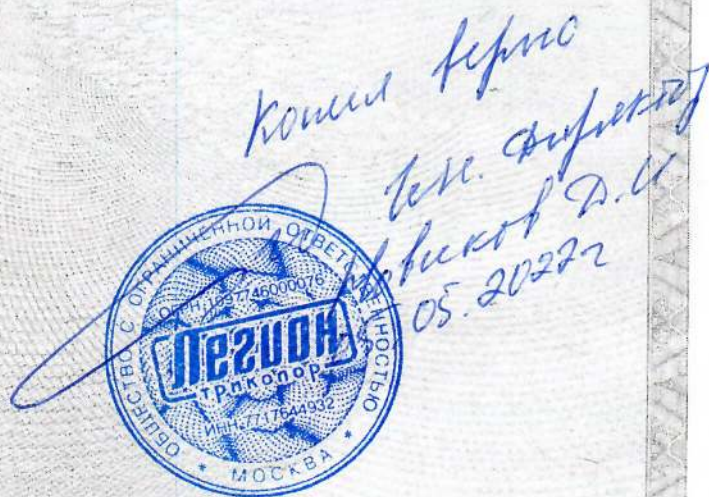 Копия верно
Ген. директор
Новиков Д.И
05.2022г
ОБЩЕСТВО С ОГРАНИЧЕННОЙ ОТВЕТСТВЕННОСТЬЮ
ОГРН 1097746000076
Легион
трикопор
ИНН 7717644932
* МОСКВА *